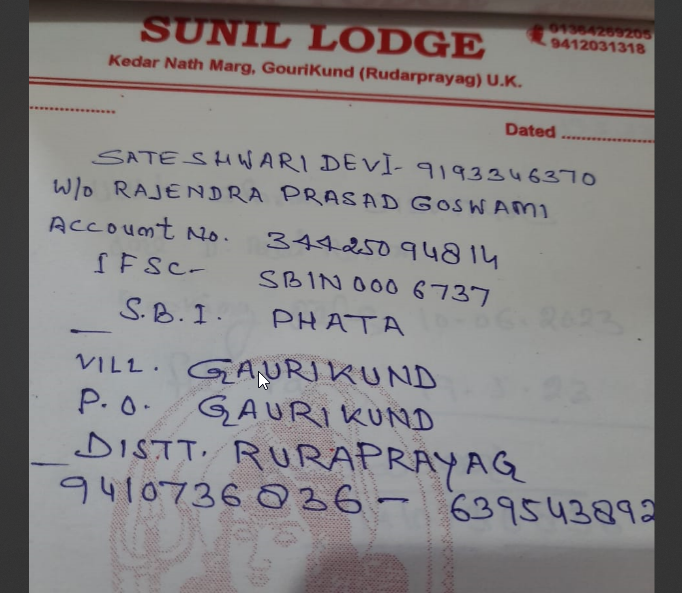 SUNIL LODGE
01364269205
9412031318
Kedar Nath Marg, GouriKund (Rudarprayag) U.K.
Dated ..............
SATESHWARI DEVI- 9193346370
W/o RAJENDRA PRASAD GOSWAMI
Account No. 34425094814
IFSC- SBIN0006737
S.B.I. PHATA
VILL. GAURIKUND
P.O. GAURIKUND
DISTT. RURAPRAYAG
9410736836 - 639543892